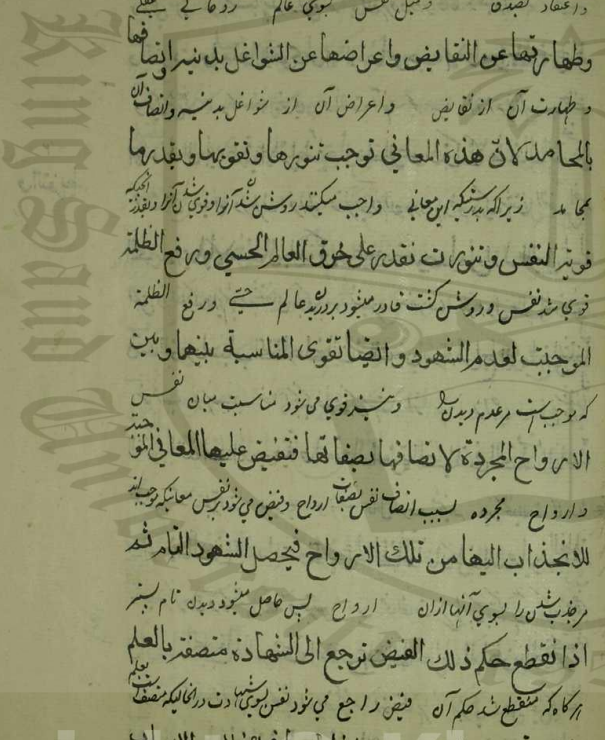 واعتقاد تصدیق و میل نفس بسوی عالم روحانی عقلی
وطهارتها عن النقايص واعراضها عن الشواغل بدنيه واتصافها
و طهارت آن از نقایض و اعراض آن از شواغل بدنیه و اتصاف آن
بالمحامد لان هذه المعاني توجب تنويرها وتقويها وبقدرما
بمحامد زیرا که بدرستیکه این معانی واجب میکنند روشن شدن آنرا و قوی شدن آنرا و بقدر
قويت النفس وتنورت تقدر على خرق العالم الحسي ورفع الظلمة
قوی شد نفس و روشن گشت قادر میشود بر دریدن عالم حسی و رفع الظلمة
الموجبة لعدم الشهود وايضا تقوى المناسبة بينها وبين
که موجب است مر عدم دیدن را و نیز قوی می شود مناسبت میان نفس
الارواح المجردة لاتصافها بصفاتها فتفيض عليها المعاني الموجبة
و ارواح مجرده بسبب اتصاف نفس بصفات ارواح و فیض می شود بر نفس معانیکه موجب اند
للانجذاب اليها من تلك الارواح فيحصل الشهود التام ثم
مر جذب شدن را بسوی آنها ازان ارواح پس حاصل میشود دیدن تام پستر
اذا انقطع حكم ذلك الفيض ترجع الى الشهادة متصفة بالعلم
هر گاه که منقطع شد حکم آن فیض راجع می شود نفس بسوی شهادت در انحالیکه متصف است بعلم
King Saud University